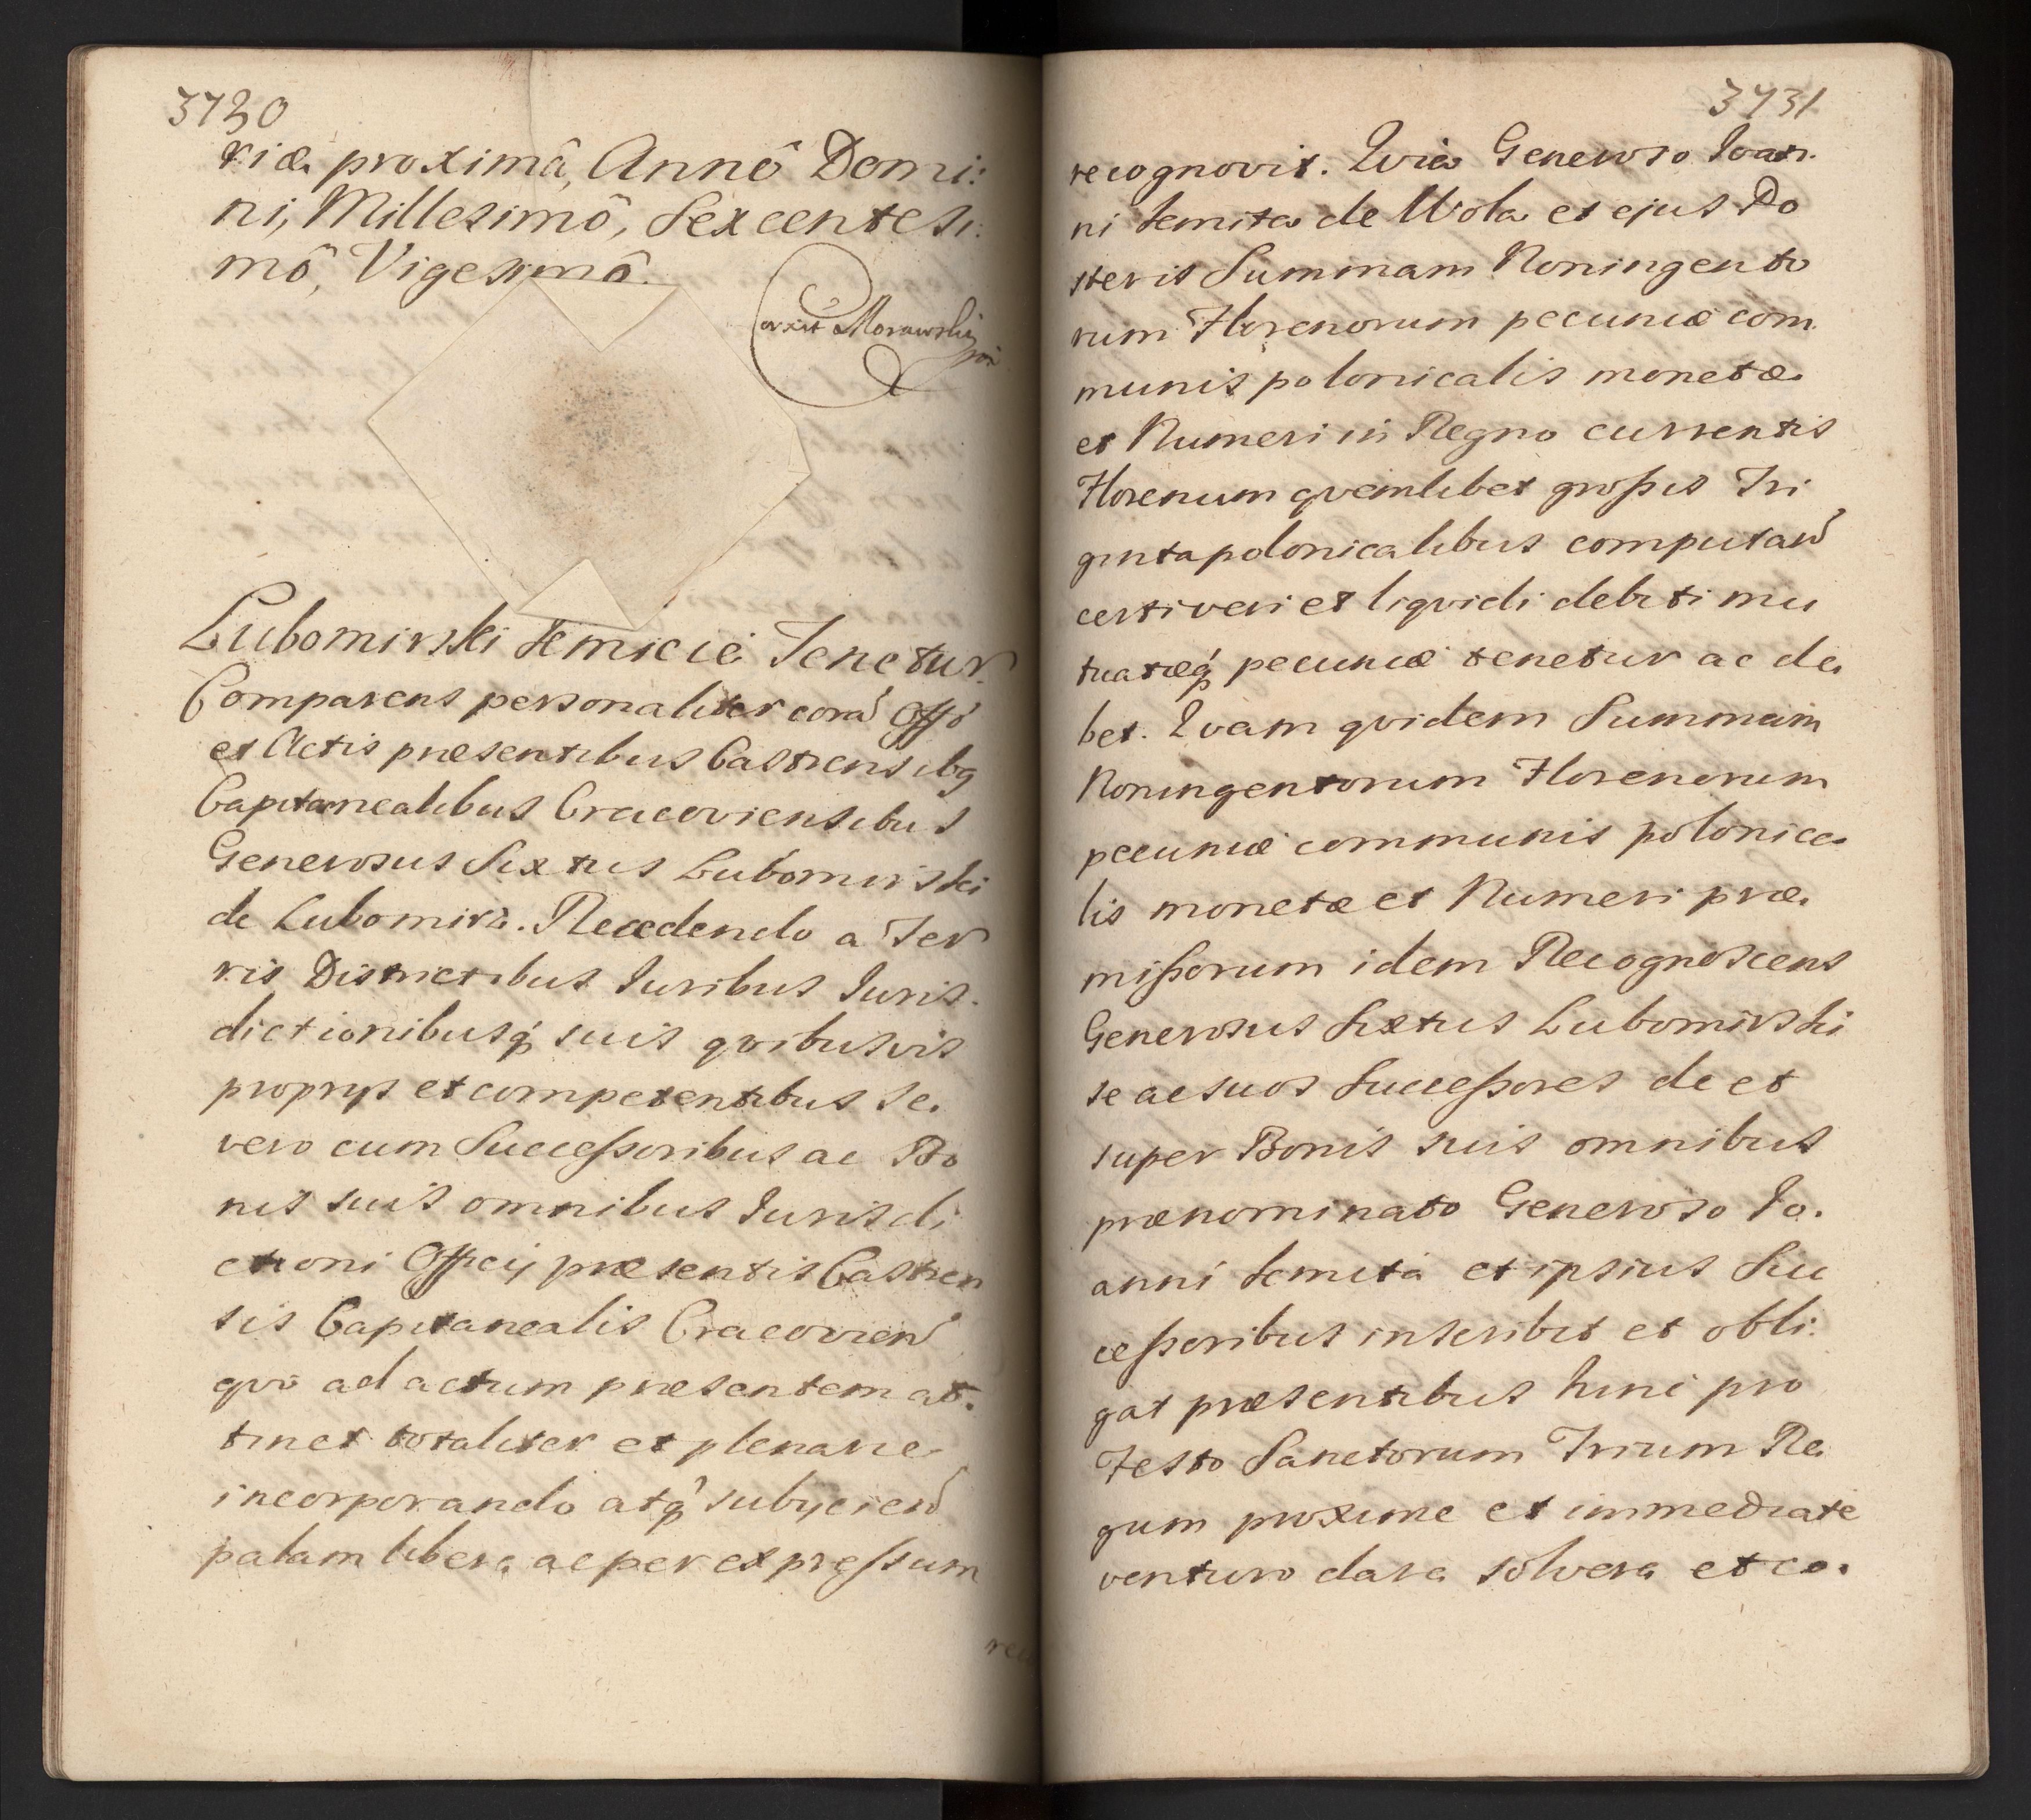 3730
riæ proximâ, Annô Domi:
ni, Millesimô, Sexcentesi:
mô, Vigesimô.
Morawski
Lubomirski Semicie Tenetur.
Comparens personaliter corã Offõ
et Actis præsentibus Castrensibq
Capitanealibus Cracoviensibus
Generosus Sixtus Lubomirski
de Lubomirz. Recedendo a Ter
ris Districtibus Iuribus Iuris.
dictionibusq́ suis qvibusvis
proprys et competentibus se.
vero cum Succeſsoribus ac Bo
nis suis omnibus Iurisdi
ctioni Officy præsentis Castren
sis Capitanealis Cracovień
qvo ad actum præsentem at.
tinet totaliter et plenarie
incorporando atq́ subycień
palam libere ac per expreſsum
rec
3731
recognovit. Qvia Generoso Ioan.
ni Semita de Wola et ejus Po
steris Summam Noningento
rum Florenorum pecuniæ com
munis polonicalis monetæ
et Numeri in Regno currentis
Florenum qvemlibet groſsis Tri
ginta polonicalibus computań
certi veri et liqvidi debiti mu
tuatæq́ pecuniæ tenetur ac de
bet. Qvam qvidem Summam
Noningentorum Florenorum
pecuniæ communis polonica
lis monetæ et Numeri præ.
miſsorum idem Recognoscens
Generosus Sixtus Lubomirski
se ac suos Succeſsores de et
super Bonis suis omnibus
prænominato Generoso Jo.
anni Semita et ipsius Suc
ceſsoribus inscribit et obli.
gat præsentibus hinc pro
Festo Sanctorum Trium Re
gum proxime et immediate
venturo dare solvere et co.